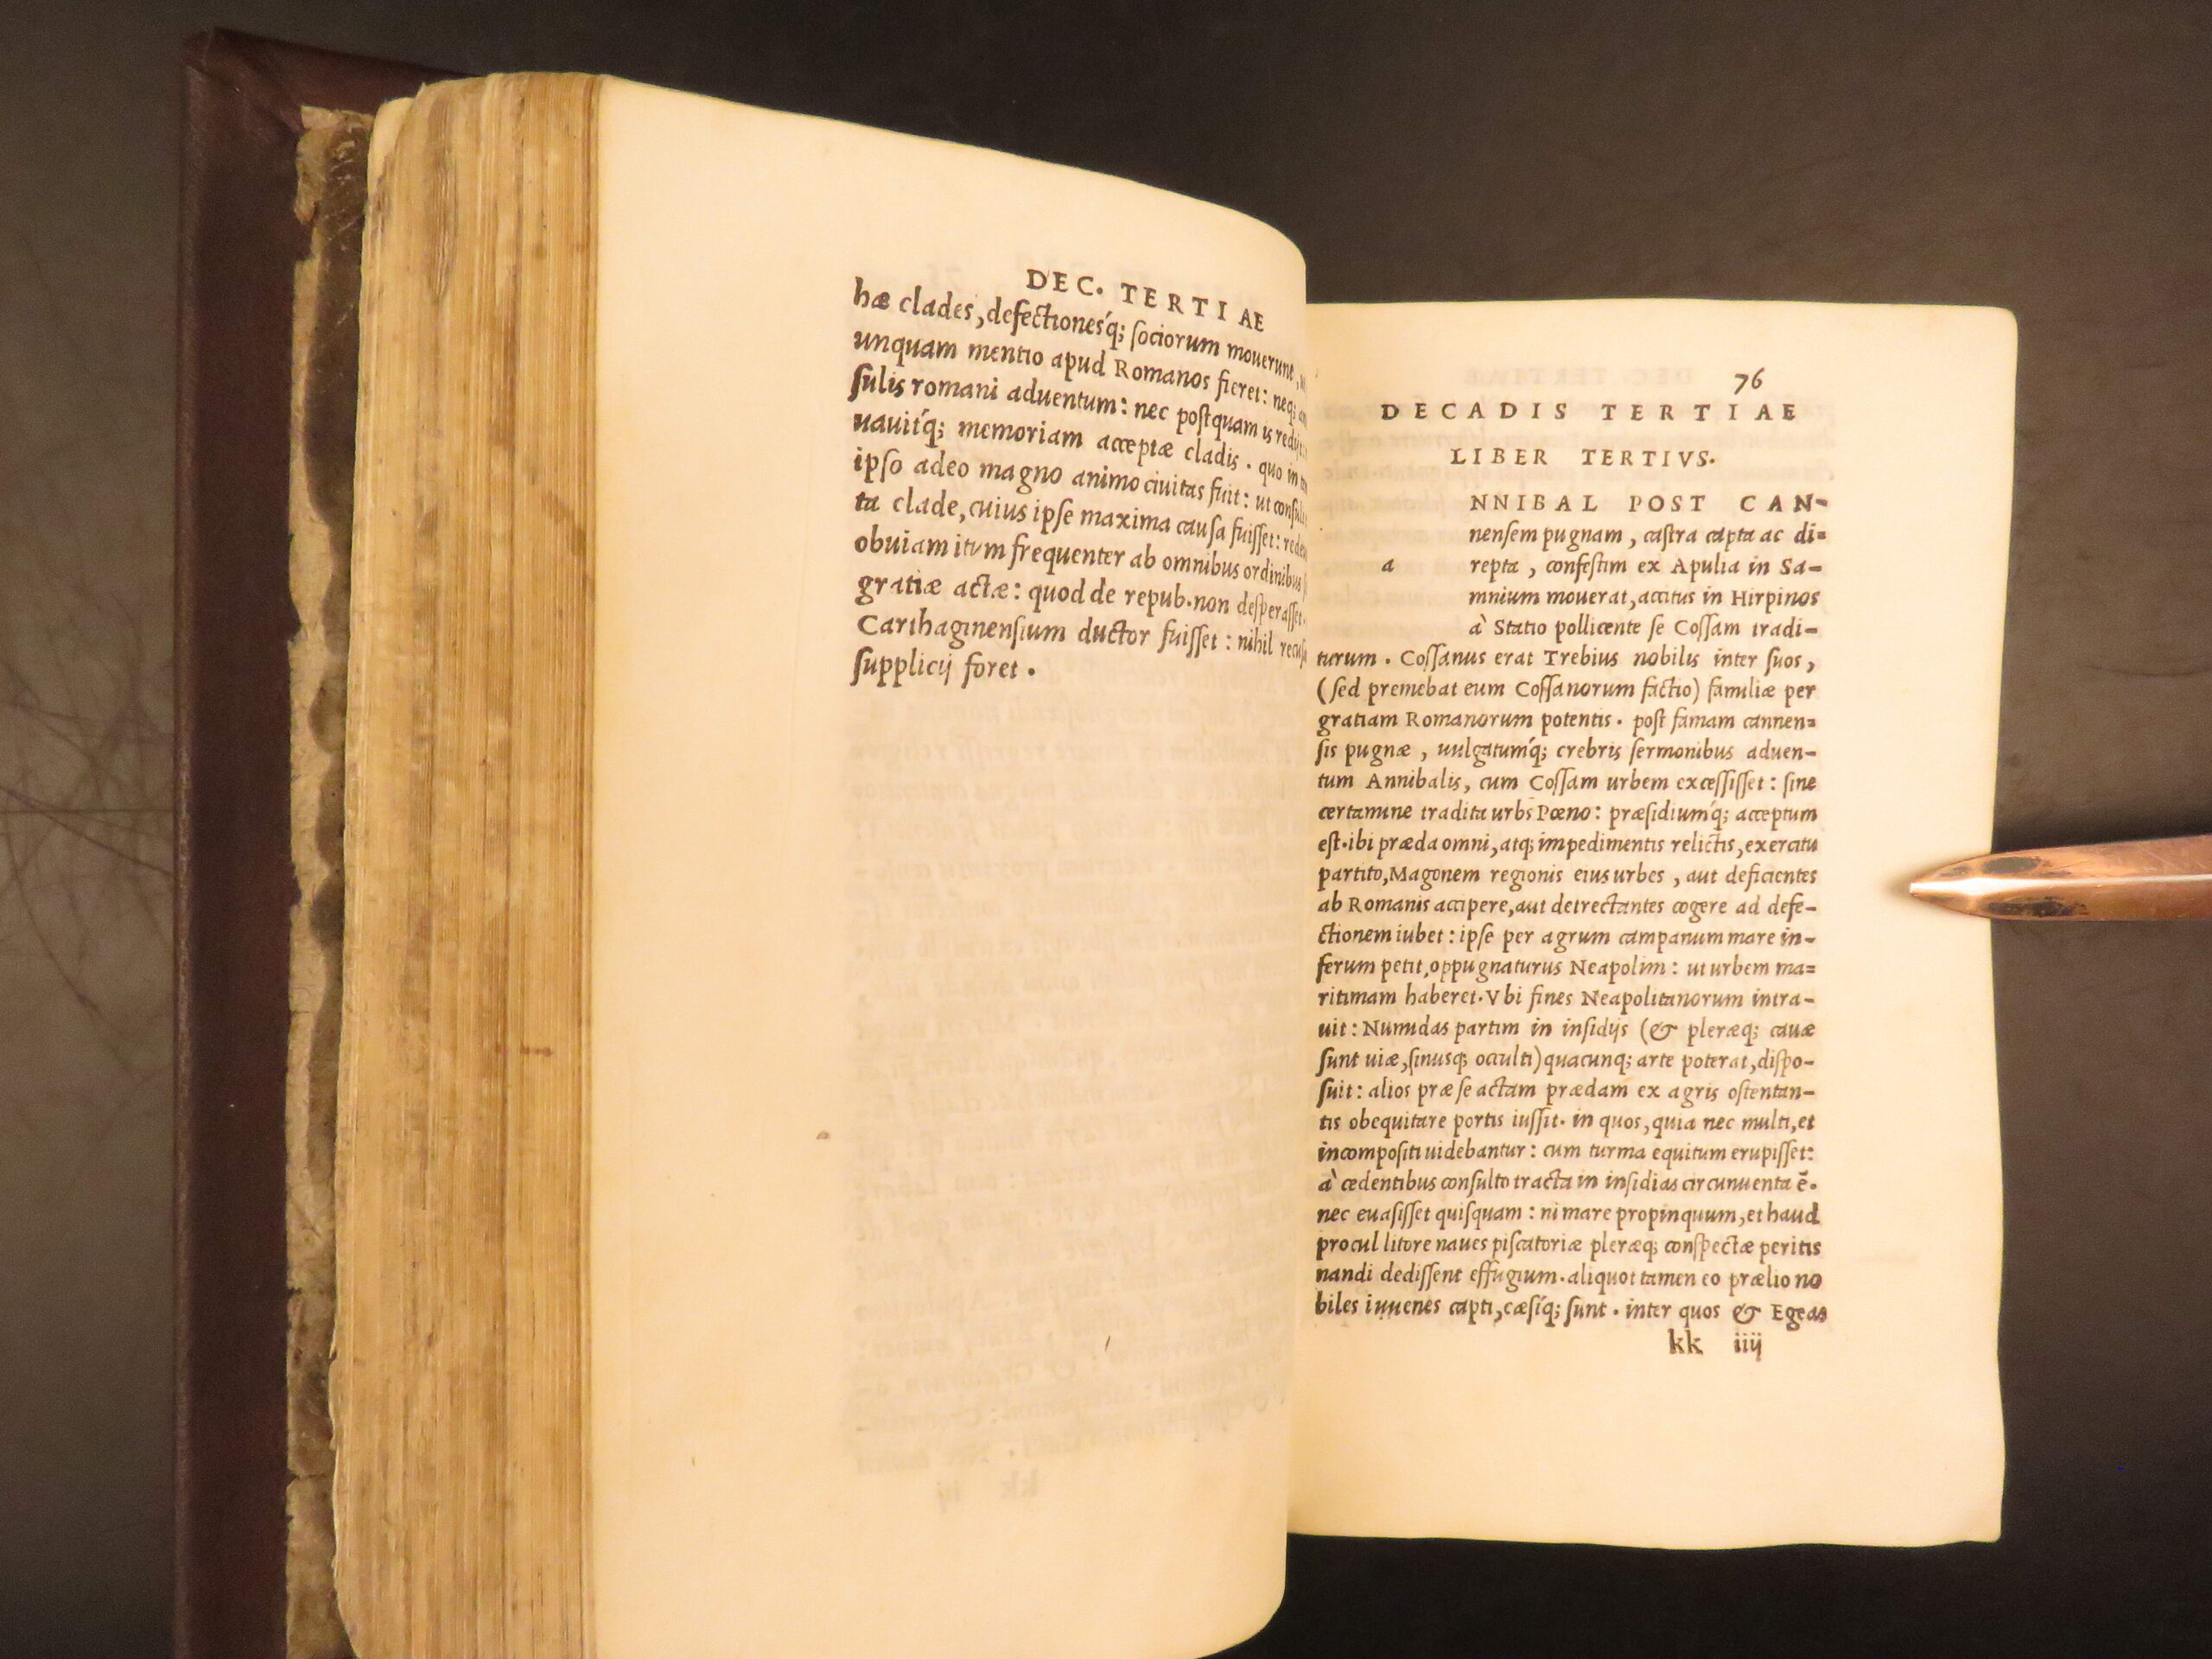 DEC. TERTIAE
hæ clades, defectionesq́; ſociorum mouerunt,
unquam mentio apud Romanos fieret: neq;
ſulis romani aduentum: nec poſtquam is
uauitq́; memoriam acceptæ cladis. quo in
ipſo adeo magno animo ciuitas fuit: ut
ta clade, cuius ipſe maxima cauſa fuiſſet:
obuiam itum frequenter ab omnibus ordinibus
gratiæ actæ: quod de repub. non deſperaſſet.
Carthaginenſium ductor fuiſſet: nihil
ſupplicij foret.
76
DECADIS TERTIAE
LIBER TERTIVS.
NNIBAL POST CAN-
nenſem pugnam, caſtra capta ac di=
a repta, confeſtim ex Apulia in Sa-
mnium mouerat, accitus in Hirpinos
à Statio pollicente ſe Coſſam tradi-
turum. Coſſanus erat Trebius nobilis inter ſuos,
(ſed premebat eum Coſſanorum factio) familiæ per
gratiam Romanorum potentis. poſt famam cannen=
ſis pugnæ, uulgatumq́; crebris ſermonibus aduen-
tum Annibalis, cum Coſſam urbem exceſſiſſet: ſine
certamine tradita urbs Pœno: præſidiumq́; acceptum
eſt. ibi præda omni, atq; impedimentis relictis, exercitu
partito, Magonem regionis eius urbes, aut deficientes
ab Romanis accipere, aut detrectantes cogere ad defe-
ctionem iubet: ipſe per agrum campanum mare in-
ferum petit, oppugnaturus Neapolim: ut urbem ma=
ritimam haberet. Vbi fines Neapolitanorum intra-
uit: Numidas partim in inſidijs (& pleræq; cauæ
ſunt uiæ, ſinusq; occulti) quacunq; arte poterat, diſpo-
ſuit: alios præ ſe actam prædam ex agris oſtentan-
tis obequitare portis iuſſit. in quos, quia nec multi, et
incompoſiti uidebantur: cum turma equitum erupiſſet:
à cedentibus conſulto tracta in inſidias circunuenta ē.
nec euaſiſſet quiſquam: ni mare propinquum, et haud
procul litore naues piſcatoriæ pleræq; conſpectæ peritis
nandi dediſſent effugium. aliquot tamen eo prælio no
biles iuuenes capti, cæſiq́; ſunt. inter quos & Egeas
kk iiij